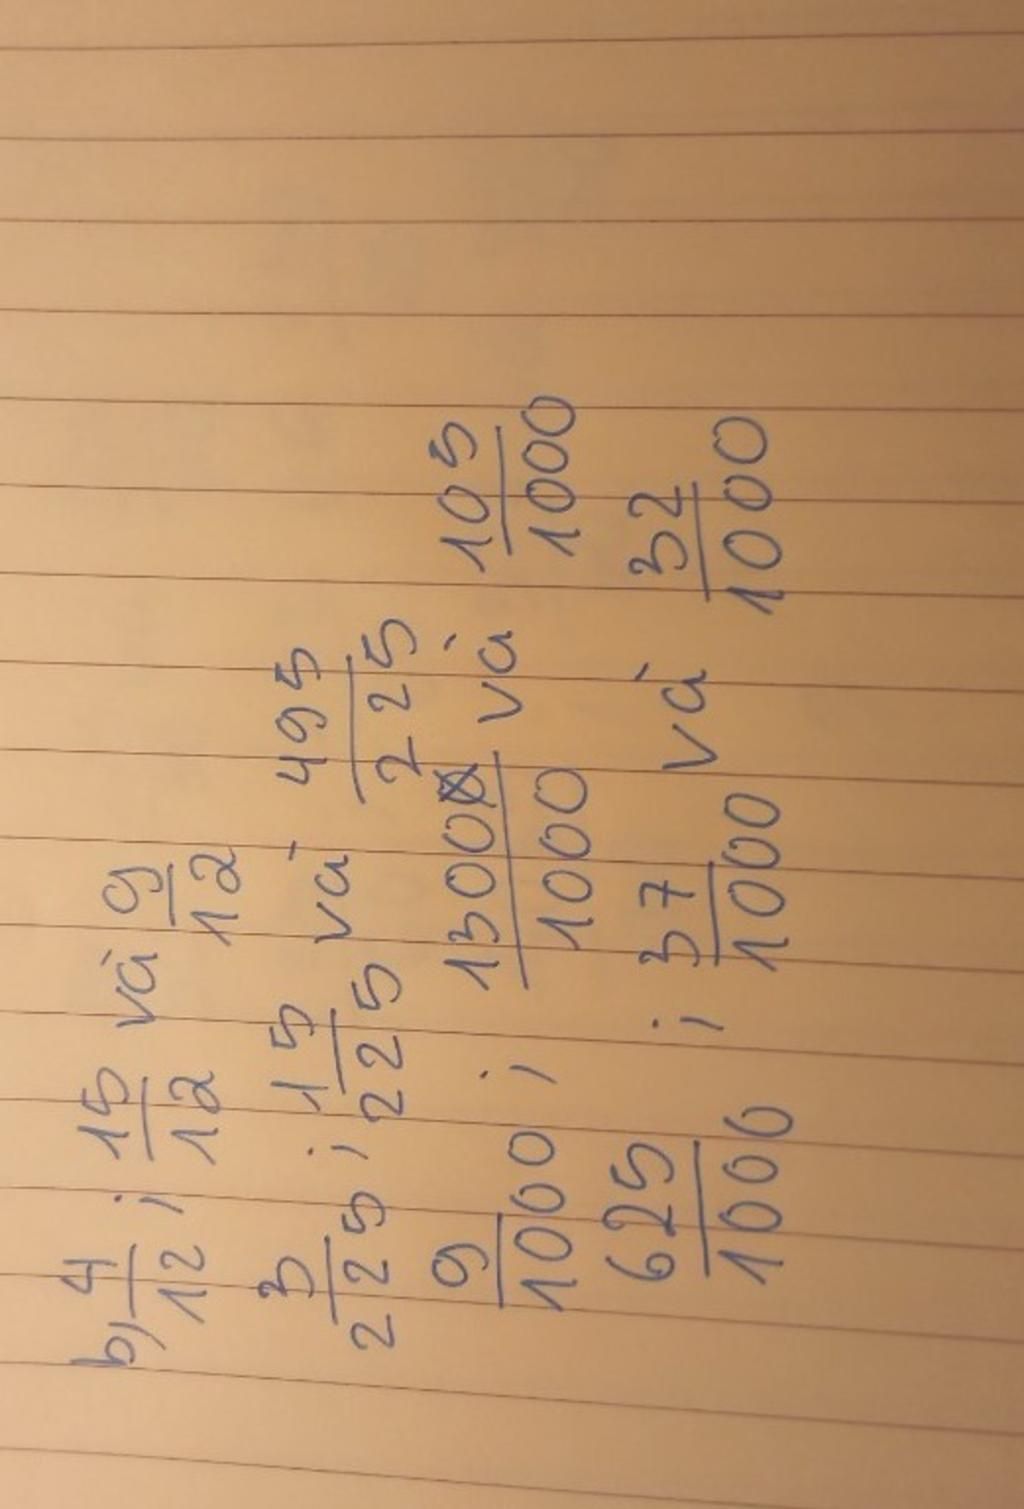 b) 4/12 ; 15/12 và 9/12
3/225 ; 15/225 và 495/225
9/1000 ; 1300/1000 và 105/1000
625/1000 ; 37/1000 và 32/1000